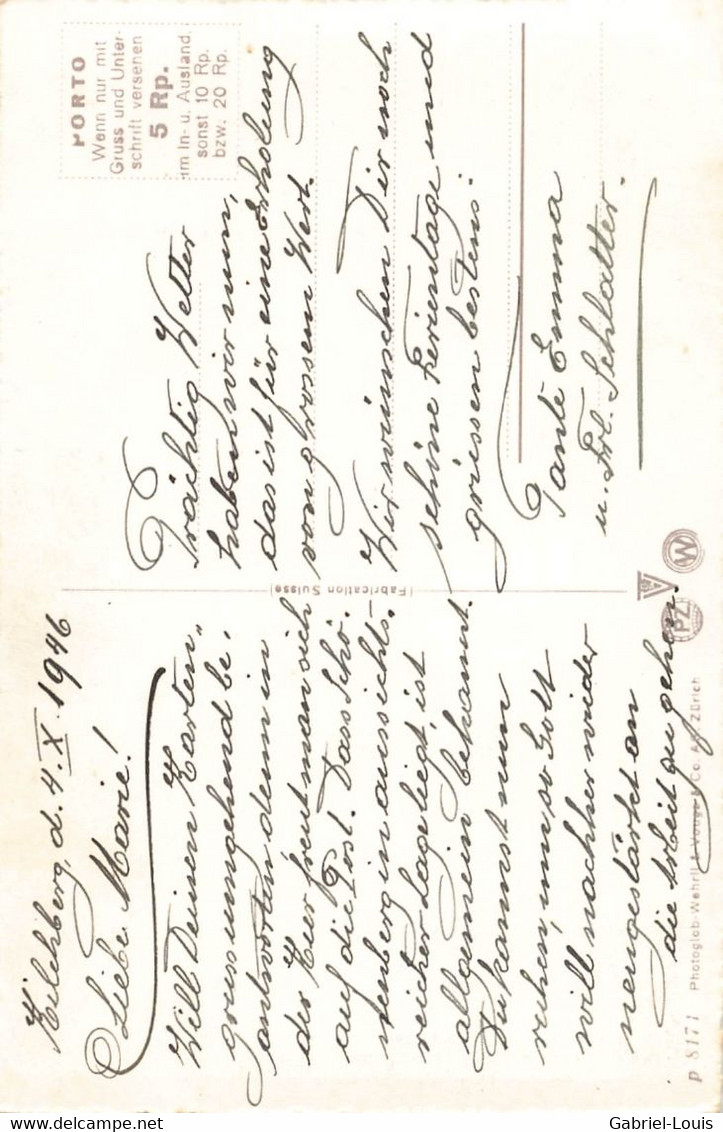 Kilchberg, d. 4. X. 1946
Liebe Marie!
Will Deinen Karten„
gruss umgehend be„
antworten denn in
der Kur freut man sich
auf die Post. Dass Schö„
nenberg in aussichts„
reicher Lage liegt, ist
allgemein bekannt.
Du kannst nun
ruhen, um so Gott
will nachher wieder
neugestärkt an
die Arbeit zu gehen.
Prächtig Wetter
haben wir nun,
das ist für eine Erholung
von grossem Wert.
Wir wünschen Dir noch
schöne Ferientage und
grüssen bestens:
Tante Emma
u. Frl. Schlatter.
PORTO
Wenn nur mit
Gruss und Unter-
schrift versehen
5 Rp.
im In- u. Ausland.
sonst 10 Rp.
bzw. 20 Rp.
(Fabrication Suisse)
PZ
W
p 8171 Photoglob-Wehrli & Vouga & Co. AG. Zürich
Gabriel-Louis